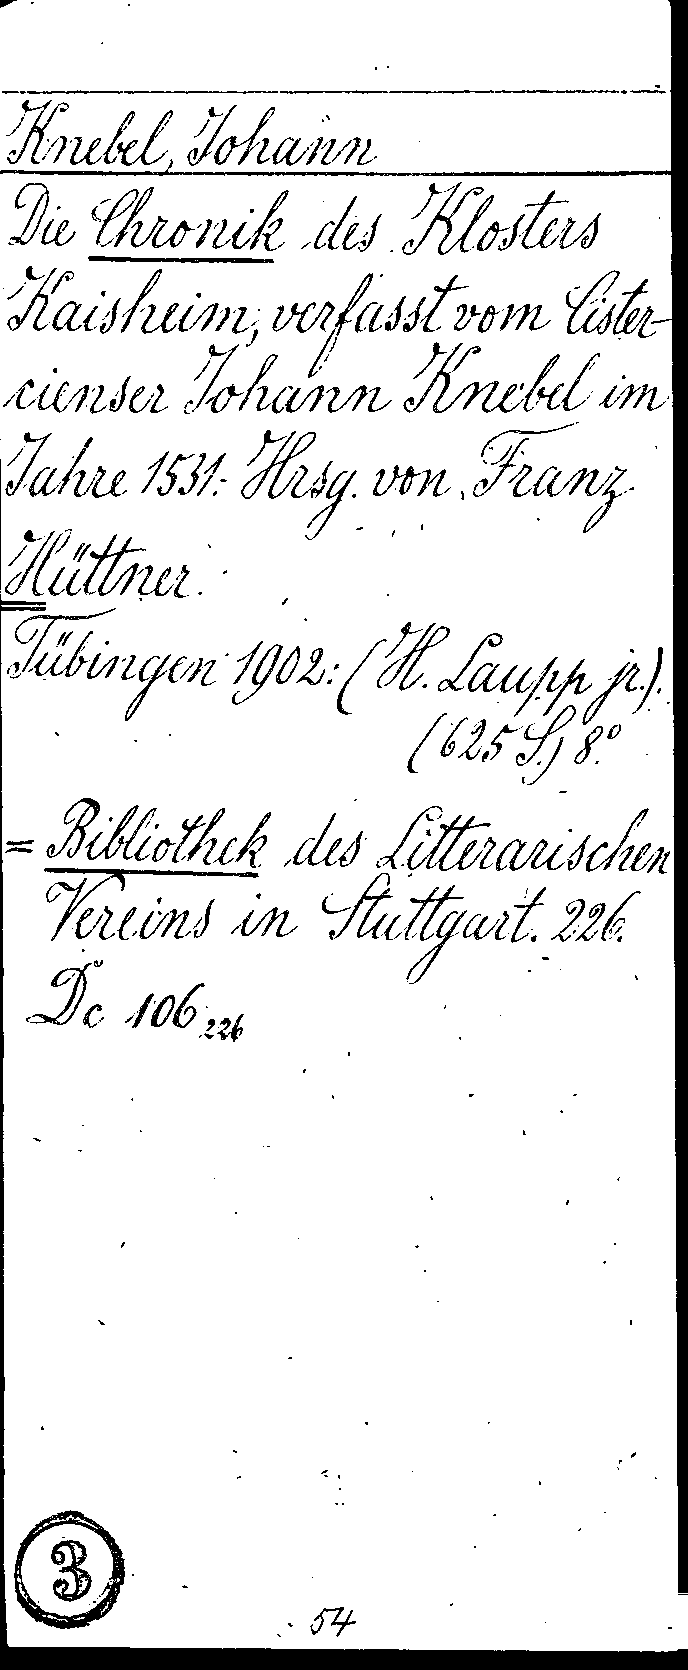 Knebel, Johann
Die Chronik des Klosters
Kaisheim, verfasst vom Cister-
cienser Johann Knebel im
Jahre 1531. Hrsg. von Franz
Hüttner.
Tübingen 1902: (H. Laupp jr.).
(625 S.) 8.º
= Bibliothek des Litterarischen
Vereins in Stuttgart. 226.
Dc 106 226
3
54